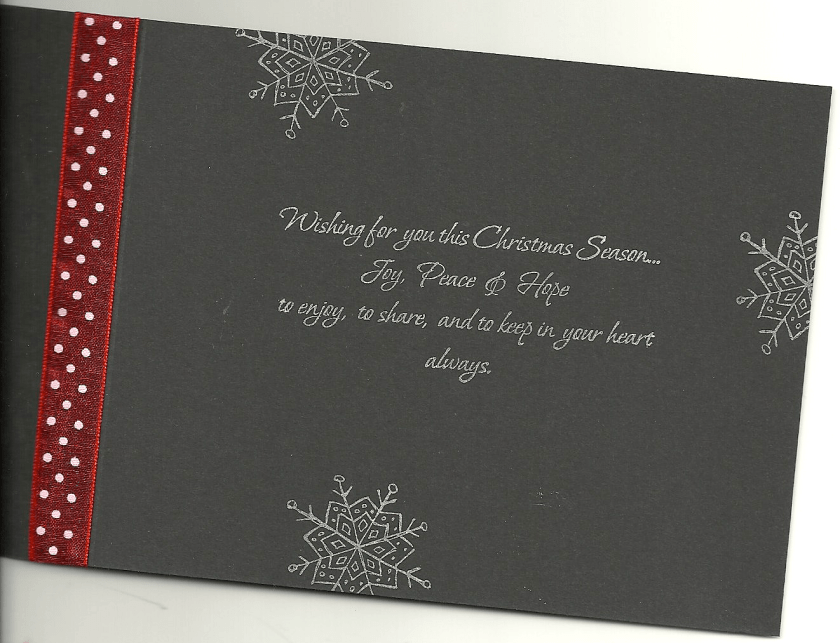 Wishing for you this Christmas Season...
Joy, Peace & Hope
to enjoy, to share, and to keep in your heart
always.